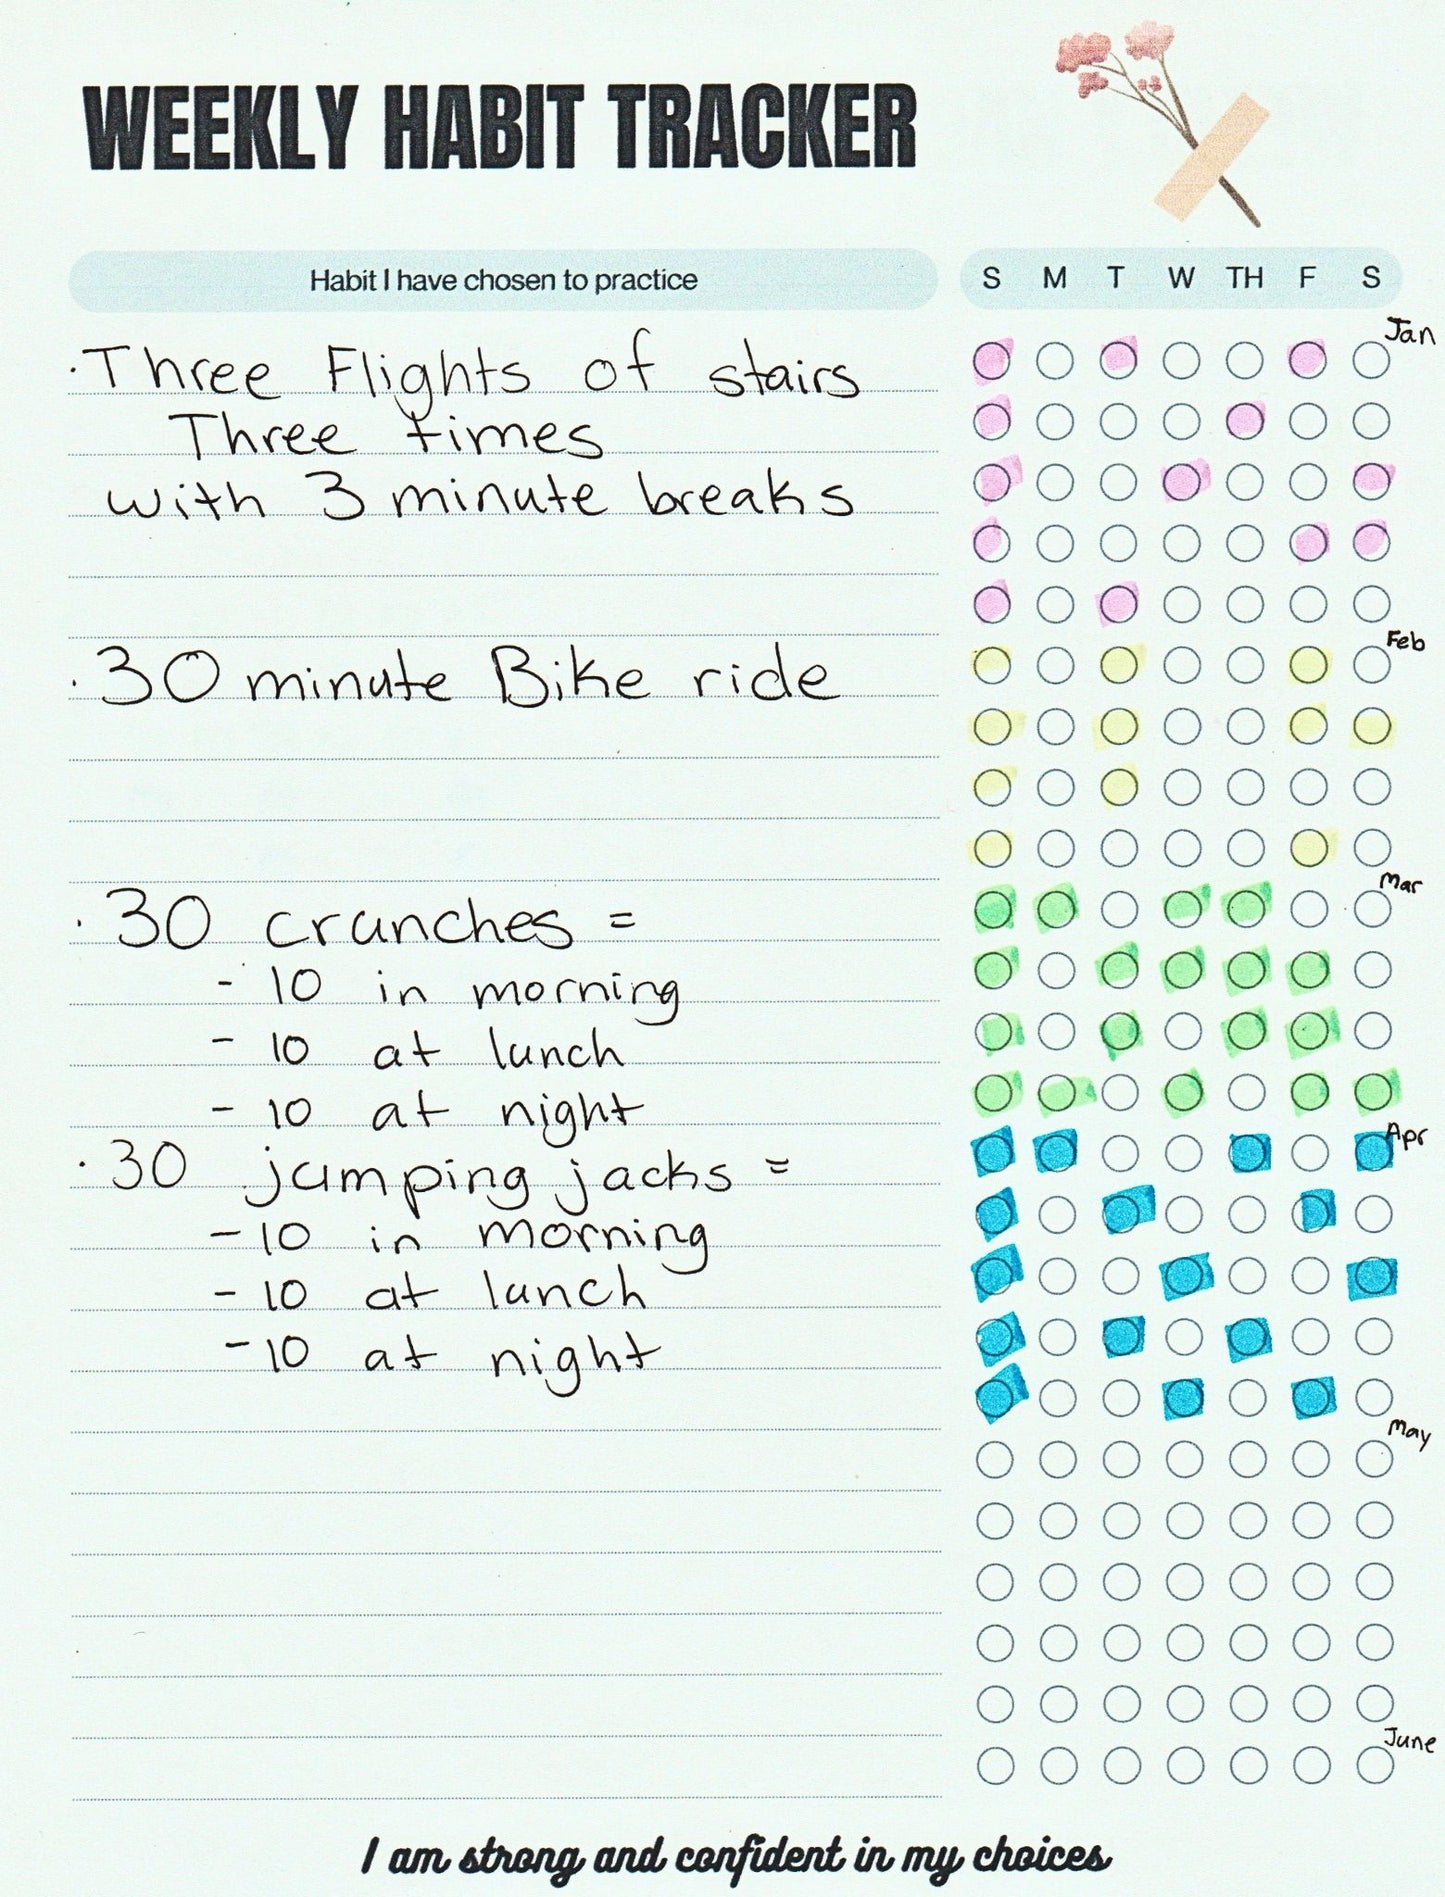 WEEKLY HABIT TRACKER
Habit I have chosen to practice
S M T W TH F S
Jan
· Three Flights of stairs
Three times
with 3 minute breaks
Feb
· 30 minute Bike ride
Mar
· 30 crunches =
- 10 in morning
- 10 at lunch
- 10 at night
Apr
· 30 jumping jacks =
- 10 in morning
- 10 at lunch
- 10 at night
May
June
I am strong and confident in my choices